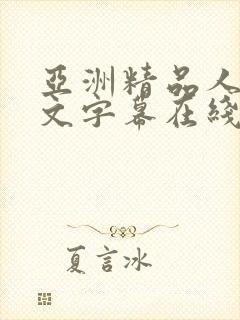 亞洲精品人
文字幕在綫
夏言冰